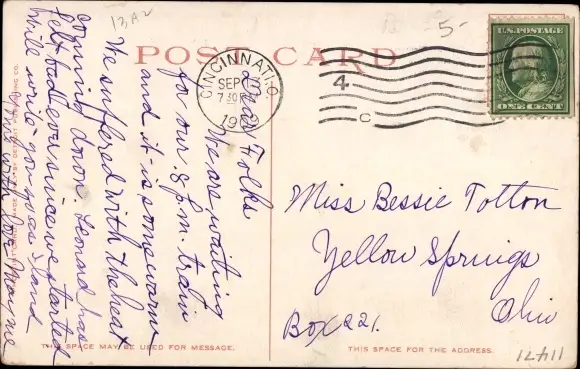 13A2
5-
POST CARD
CINCINNATI, O.
SEP
7 30 P
19
4
C
U.S. POSTAGE
ONE CENT
Dear Folks
We are waiting
for our 8 p.m. train
and it is so warm
We suffered with the heat
coming down. Leonard has
felt bad ever since we started
Will write you
with love Mayme
Miss Bessie Totton
Yellow Springs
Ohio
Box 221.
THIS SPACE MAY BE USED FOR MESSAGE.
THIS SPACE FOR THE ADDRESS.
11471